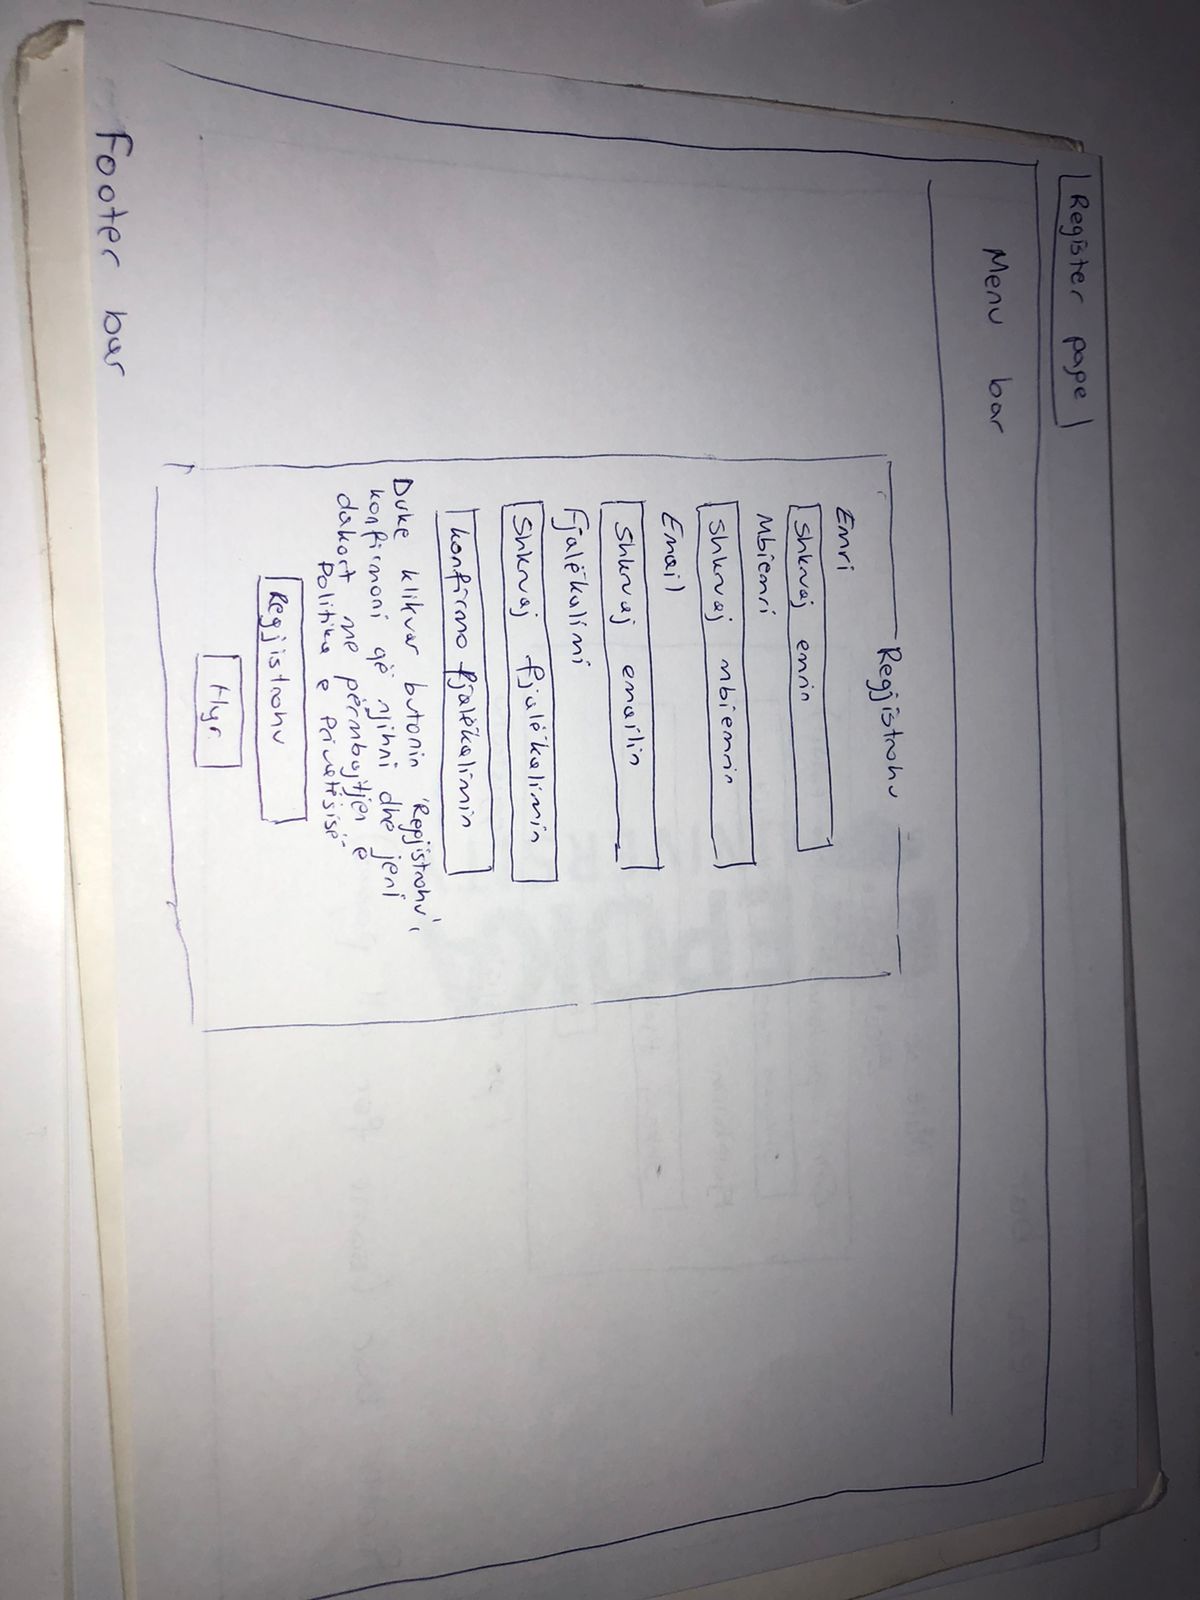 Register page
Menu bar
Regjistrohu
Emri
Shkruaj emrin
Mbiemri
Shkruaj mbiemrin
Email
Shkruaj emailin
Fjalëkalimi
Shkruaj fjalëkalimin
konfirmo fjalëkalimin
Duke klikuar butonin "Regjistrohu",
konfirmoni që njihni dhe jeni
dakort me përmbajtjen e
Politika e Privatësisë.
Regjistrohu
Hyr
Footer bar